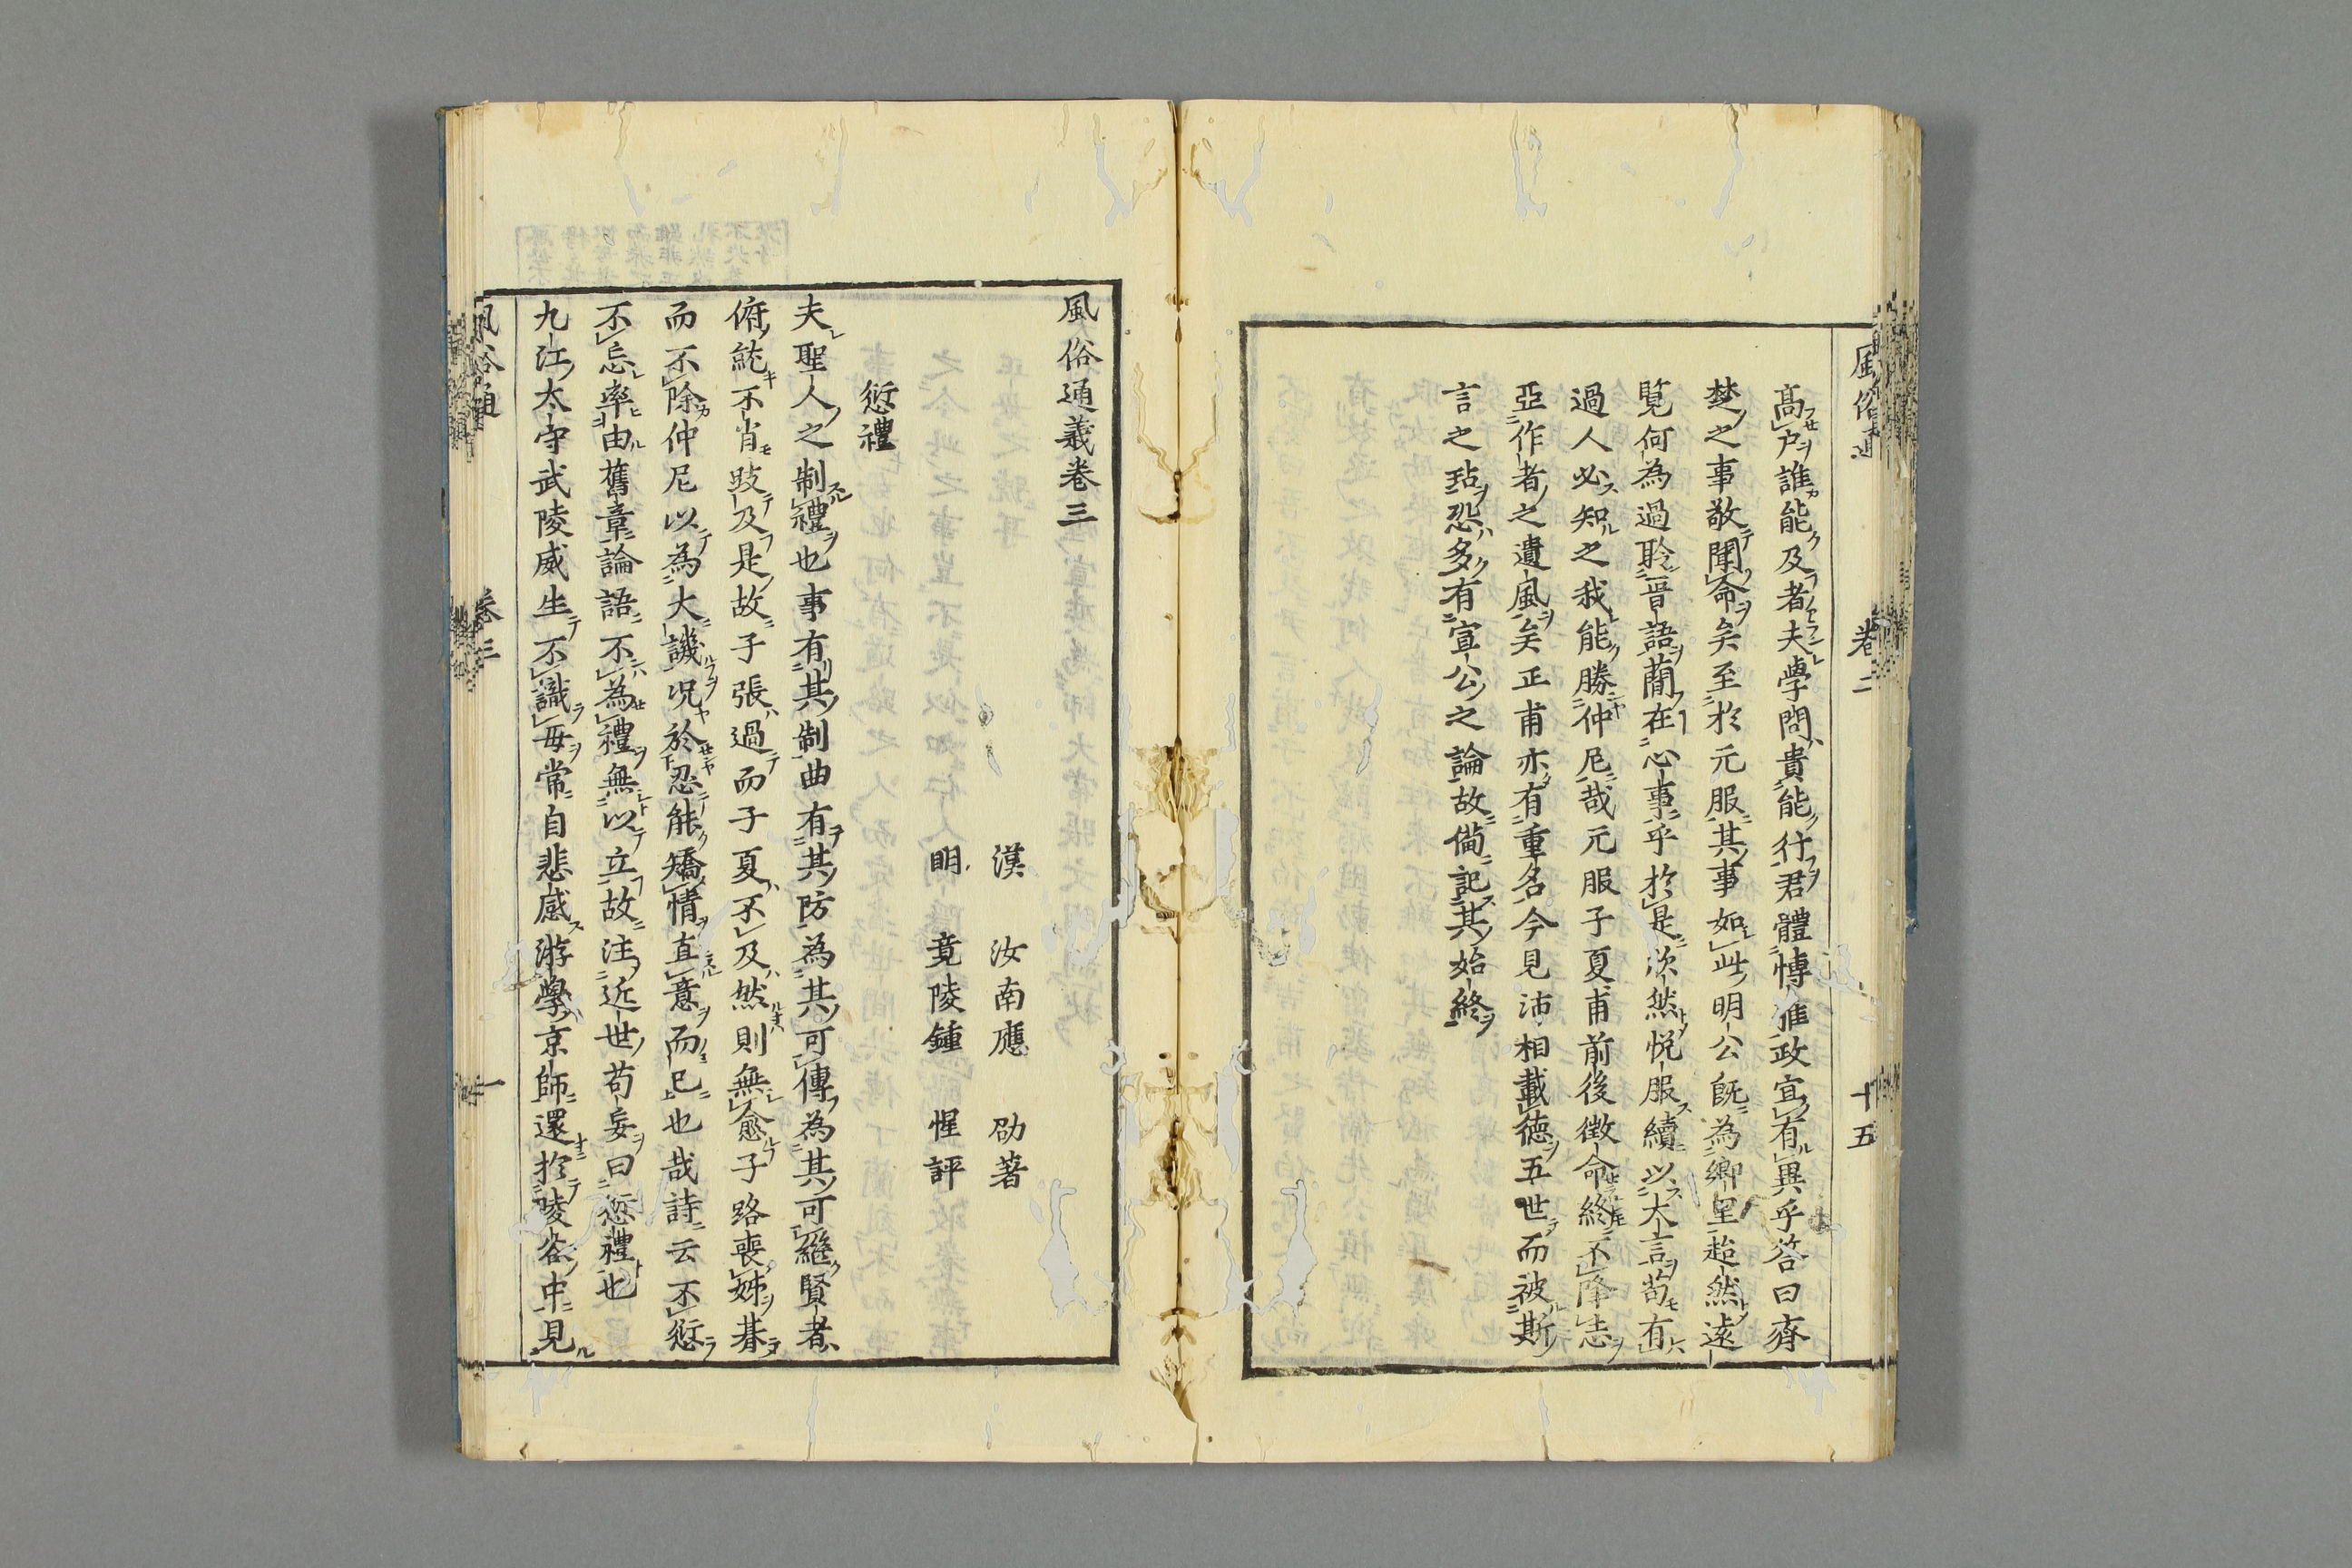 風俗通 卷二 十五
高户誰能及者夫學問貴能行君體博雅政宜有異乎答曰齊
楚之事敬聞命矣至於元服其事如此明公既為鄉里超然遠
覽何為過聆晋語蕑在心事乎於是欣然悦服續以大言苟有
過人必知之我能勝仲尼哉元服子夏甫前後徴命終不降志
亞作者之遺風矣正甫亦有重名今見沛相載德五世而被斯
言之玷恐多有宣公之論故備記其始終
風俗通義卷三
漢 汝南應 劭著
明 竟陵鍾 惺評
愆禮
夫聖人之制禮也事有其制曲有其防為其可傳為其可繼賢者
俯就不肖跂及是故子張過而子夏不及然則無愈子路喪姊朞
而不除仲尼以為大譏况於忍能矯情直意而已也哉詩云不愆
不忘率由舊章論語不為禮無以立故注近世苟妄曰愆禮也
九江太守武陵威生不識母常自悲感游學京師還於陵谷中見
風俗通 卷三 一